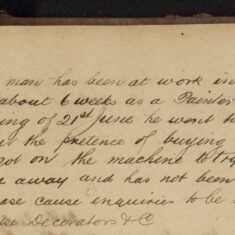 man has been at work in
about 6 weeks as a Painter
ing of 21st June he went to
the pretence of buying
got on the machine to try
away and has not been
cause inquiries to be
Decorators & C